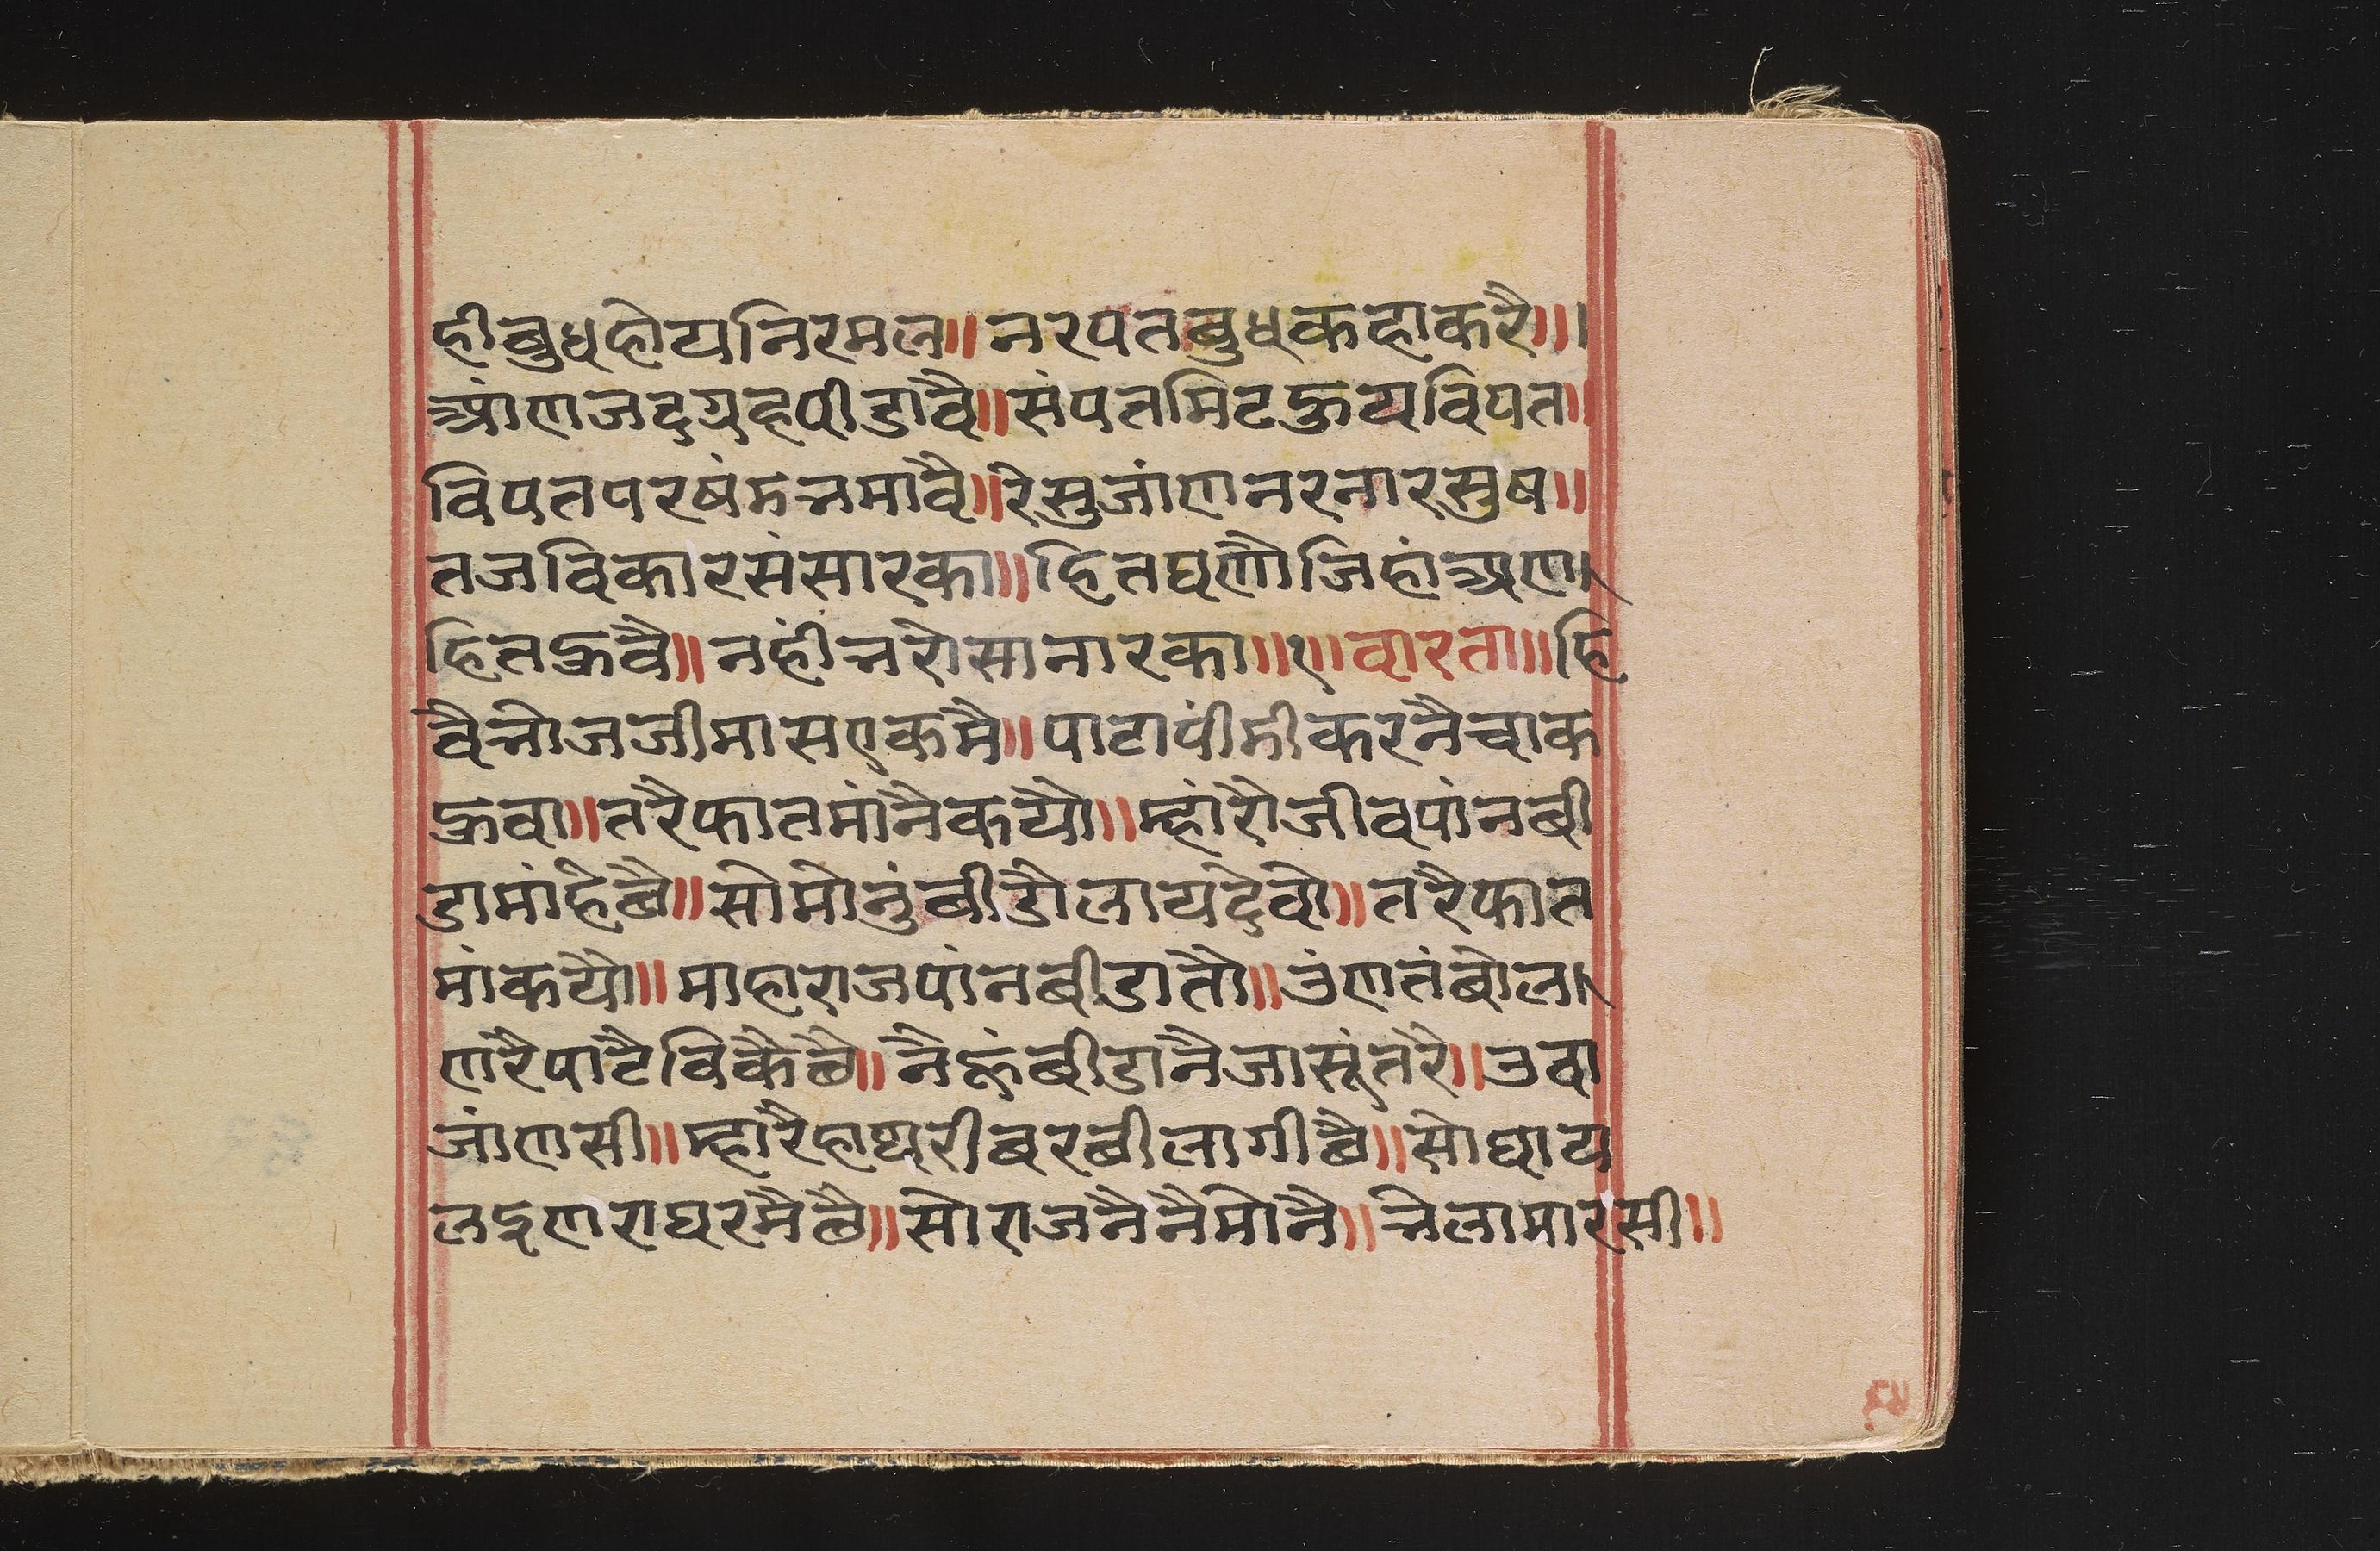 ही बुध होय निरमल॥ नरपत बुध कहा करै॥।
आंण जद ग्रह पीडावै॥ संपत मिट हुय विपत॥
विपत पर षंम न मावै॥ रे सुजांण नर नार सुष॥
तज विकार संसार का॥ हित घणौ जिहां अण
हित हुवै॥ नहीं नरोसा नार का॥१॥ वारता॥ हि
वै नोजजी मास एक मै॥ पाटा पींमी करनै चाक
हुवा॥ तरै फातमां नै कयौ॥ म्हांरौ जीव पांन बी
डा मांहे छै॥ सो मोनुं बीडौ लाय देवो॥ तरै फात
मां कयौ॥ माहाराज पांन बीडा तौ॥ उंण तंबोल
ण रै पाटै विकै छै॥ नै हुं बीडा नै जासूं तरै॥ उवा
जांणसी॥ म्हारै हाथ री बरबी लागी छै॥ सो घाय
ल इण रा घर मै छै॥ सो राज नै नै मोनै॥ नेला मारसी॥